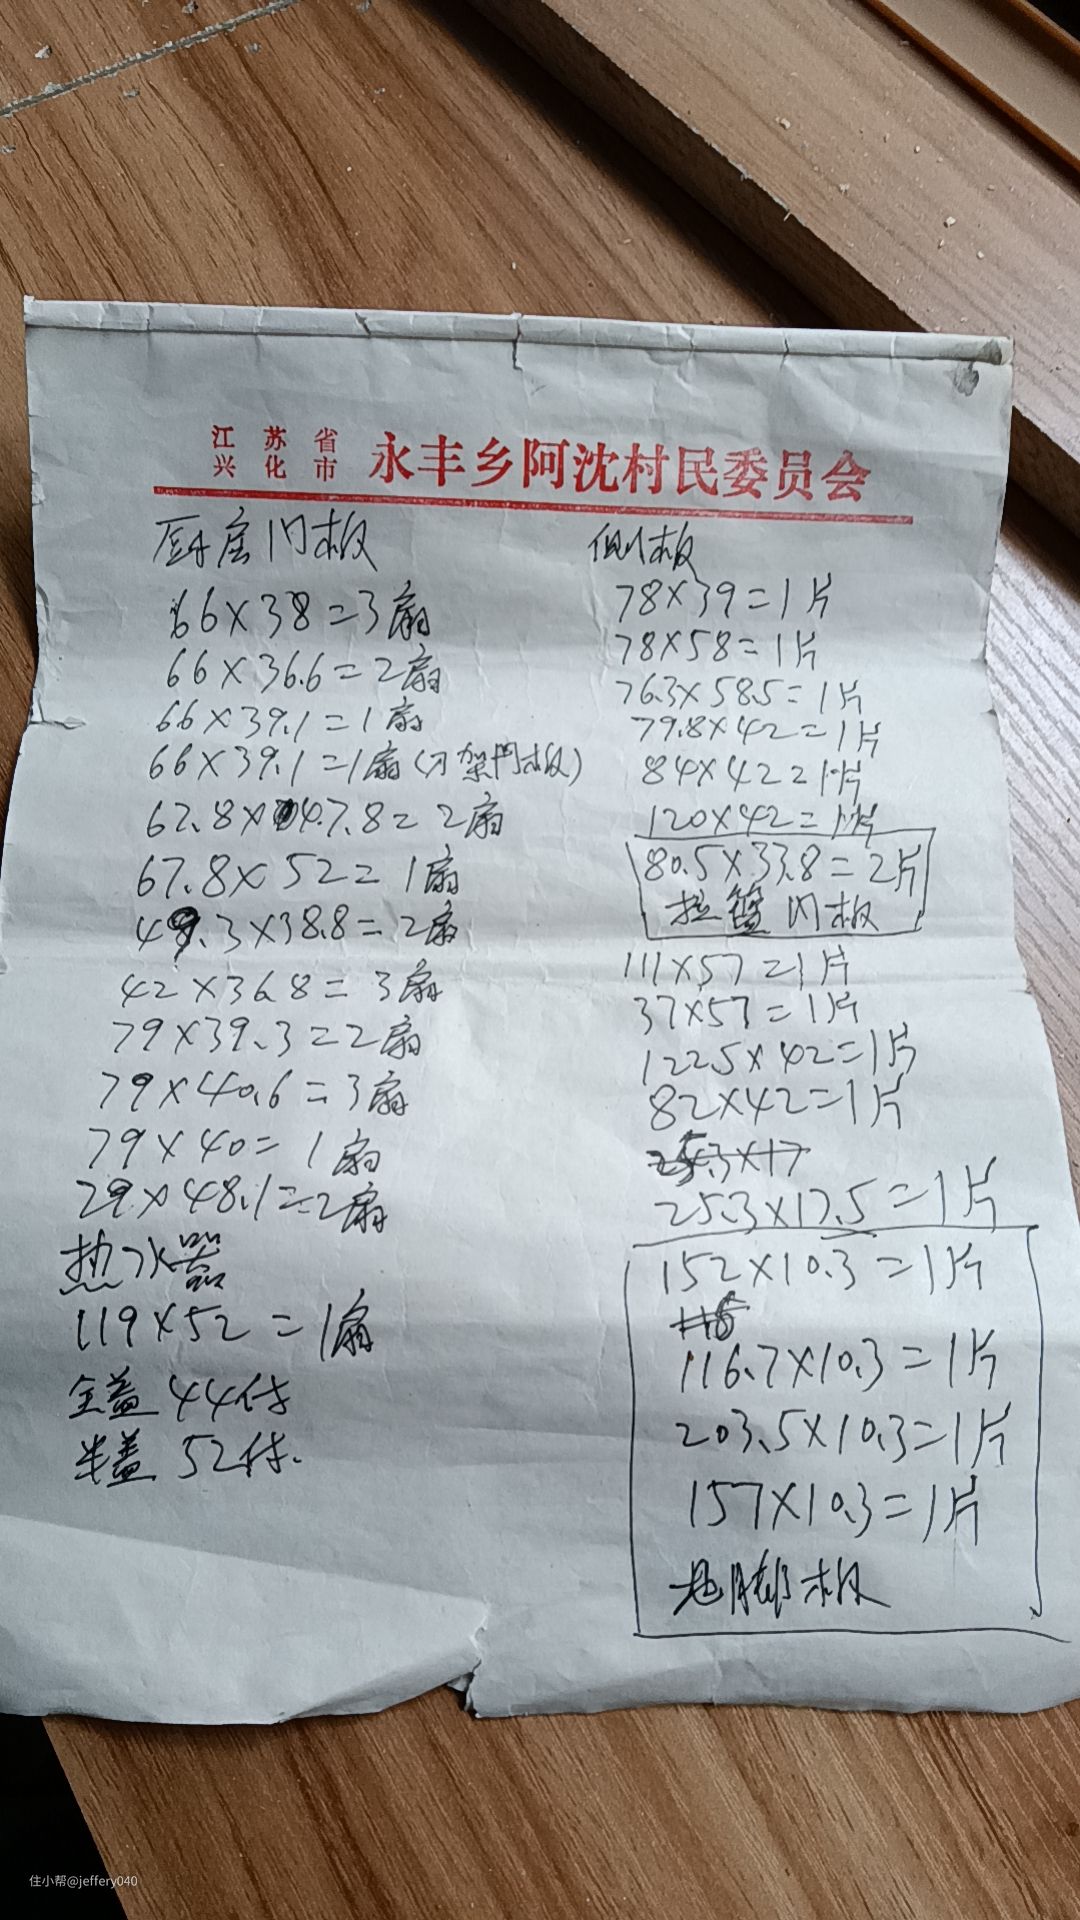 江苏省
兴化市
永丰乡阿沈村民委员会
厨房门板
66×38=3扇
66×36.6=2扇
66×39.1=1扇
66×39.1=1扇(刀架門板)
67.8×47.8=2扇
67.8×52=1扇
49.3×38.8=2扇
42×36.8=3扇
79×39.3=2扇
79×40.6=3扇
79×40=1扇
29×48.1=2扇
热水器
119×52=1扇
全盖 44付
半盖 52付.
侧板
78×39=1片
78×58=1片
76.3×58.5=1片
79.8×42=1片
84×42=1片
120×42=1片
80.5×33.8=2片
拉篮门板
111×57=1片
37×57=1片
122.5×42=1片
82×42=1片
25.3×17
25.3×17.5=1片
152×10.3=1片
116.7×10.3=1片
203.5×10.3=1片
157×10.3=1片
脚板
住小帮@jeffery040